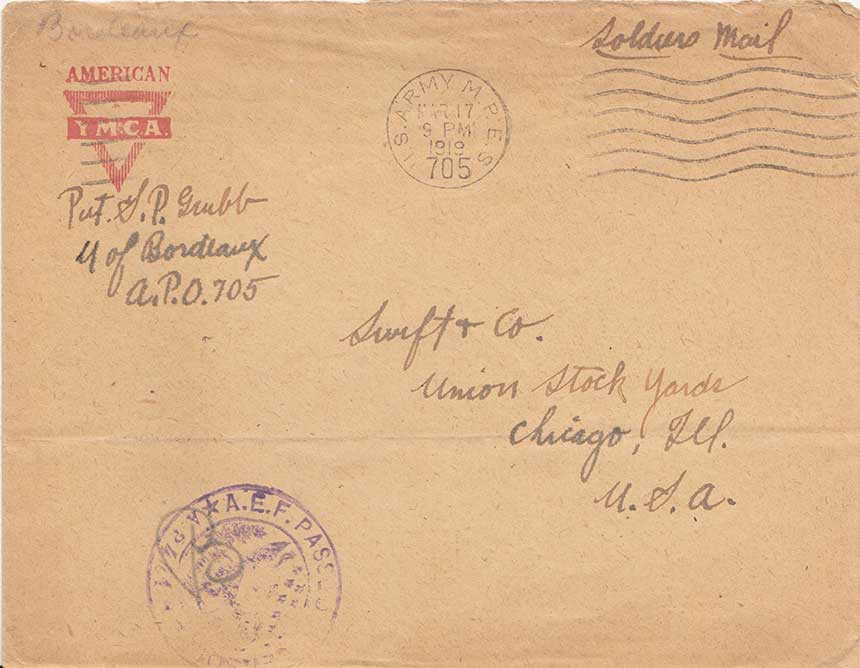 Bordeaux
Soldiers Mail
AMERICAN
Y.M.C.A.
U.S. ARMY M.P.E.S.
MAR 17
9 PM
1919
705
Pvt. S. P. Grubb
U of Bordeaux
A.P.O. 705
Swift & Co.
Union Stock Yards
Chicago, Ill.
U.S.A.
A.E.F. PASSED